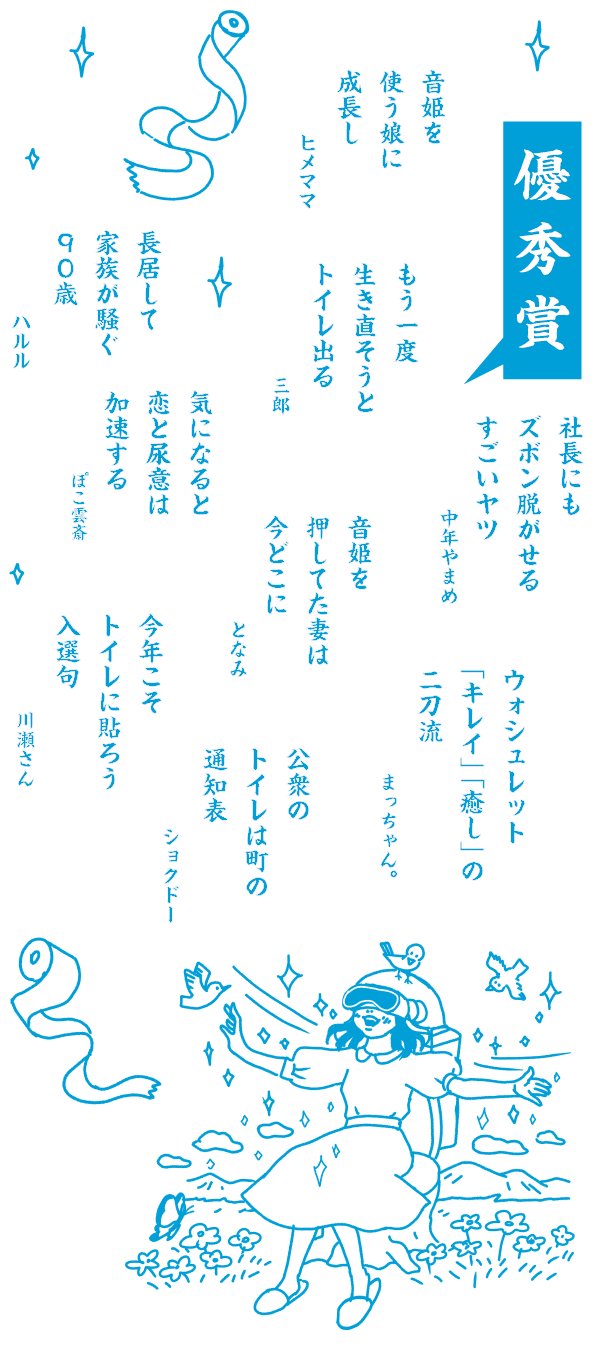 優秀賞
社長にも
ズボン脱がせる
すごいヤツ
中年やまめ
ウォシュレット
「キレイ」「癒し」の
二刀流
まっちゃん。
音姫を
使う娘に
成長し
ヒメママ
もう一度
生き直そうと
トイレ出る
三郎
音姫を
押してた妻は
今どこに
となみ
公衆の
トイレは町の
通知表
ショクドー
長居して
家族が騒ぐ
90歳
ハルル
気になると
恋と尿意は
加速する
ぽこ雲斎
今年こそ
トイレに貼ろう
入選句
川瀬さん